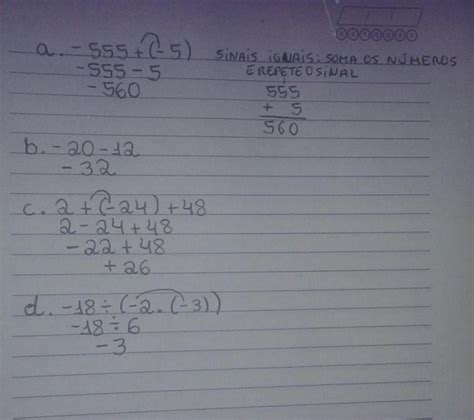 a. -555 + (-5)
-555 - 5
-560
SINAIS IGUAIS: SOMA OS NÚMEROS
E REPETE O SINAL
555
+ 5
560
b. -20 - 12
-32
c. 2 + (-24) + 48
2 - 24 + 48
-22 + 48
+ 26
d. -18 ÷ (-2 . (-3))
-18 ÷ 6
-3